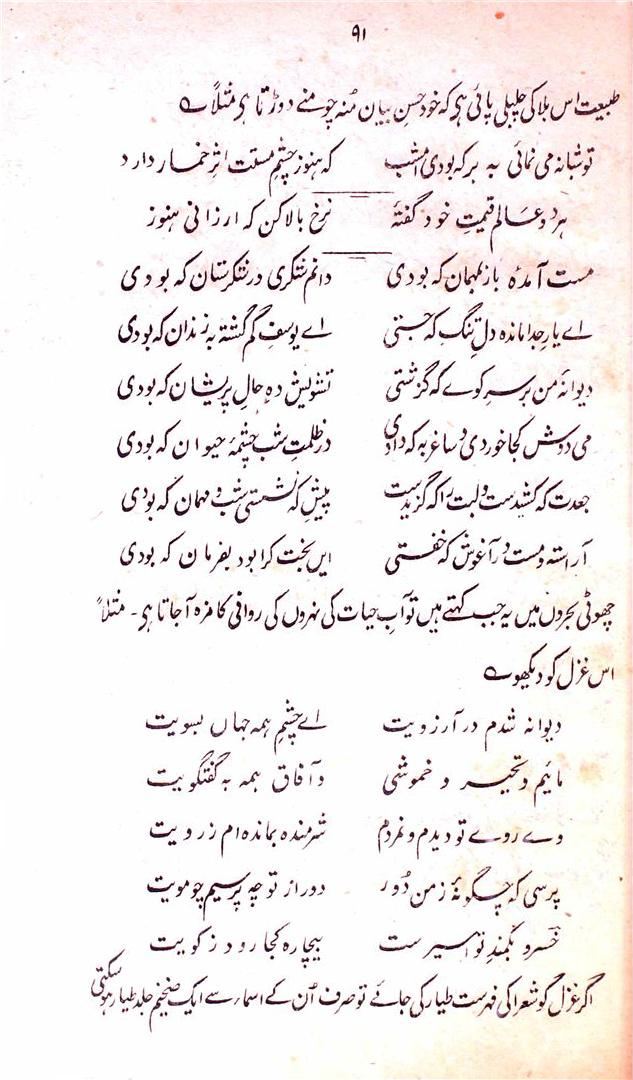 ۹۱
طبیعت اس بلا کی چلبلی پائی ہی کہ خود حسن بیان منہ چومنے دوڑتا ہی مثلاً
تو شبانہ می نمائی بہ برکہ بودی امشب کہ ہنوز چشمِ مستت اثرِ خمار دارد
ہر دو عالم قیمتِ خود گفتۂ نرخ بالا کن کہ ارزانی ہنوز
مست آمدہ باز بمہمان کہ بودی دانم شکری در شکرستان کہ بودی
اے یار جدا ماندہ دلِ تنگ کہ جستی اے یوسفِ گم گشتہ بہ زندان کہ بودی
دیوانۂ من بر سرِ کوے کہ گزشتی تشویش دہِ حالِ پریشان کہ بودی
می دوش کجا خوردی و ساغر بہ کہ دادی در ظلمتِ شب چشمۂ حیوان کہ بودی
جعدت کہ کشیدست و لبت را کہ گزیدست پیشِ کہ نشستی شب و مہمان کہ بودی
آراستہ و مست در آغوش کہ خفتی ایں بخت کرا بود بفرمان کہ بودی
چھوٹی بحروں میں یہ جب کہتے ہیں تو آبِ حیات کی نہروں کی روانی کا مزہ آجاتا ہی۔ مثلاً
اس غزل کو دیکھو
دیوانہ شدم در آرزویت اے چشمِ ہمہ جہاں بسویت
مائیم و تحیر و خموشی و آفاق ہمہ بہ گفتگویت
دے روے تو دیدم و نمردم شرمندہ بماندہ ام ز رویت
پرسی کہ چگونۂ ز من دور دور از تو چہ پرسیم چو مویت
خسرو بکمندِ تو اسیرست بیچارہ کجا رود ز کویت
اگر غزل گو شعرا کی فہرست طیار کی جائے تو صرف اُن کے اسمار سے ایک ضخیم جلد طیار ہوسکتی